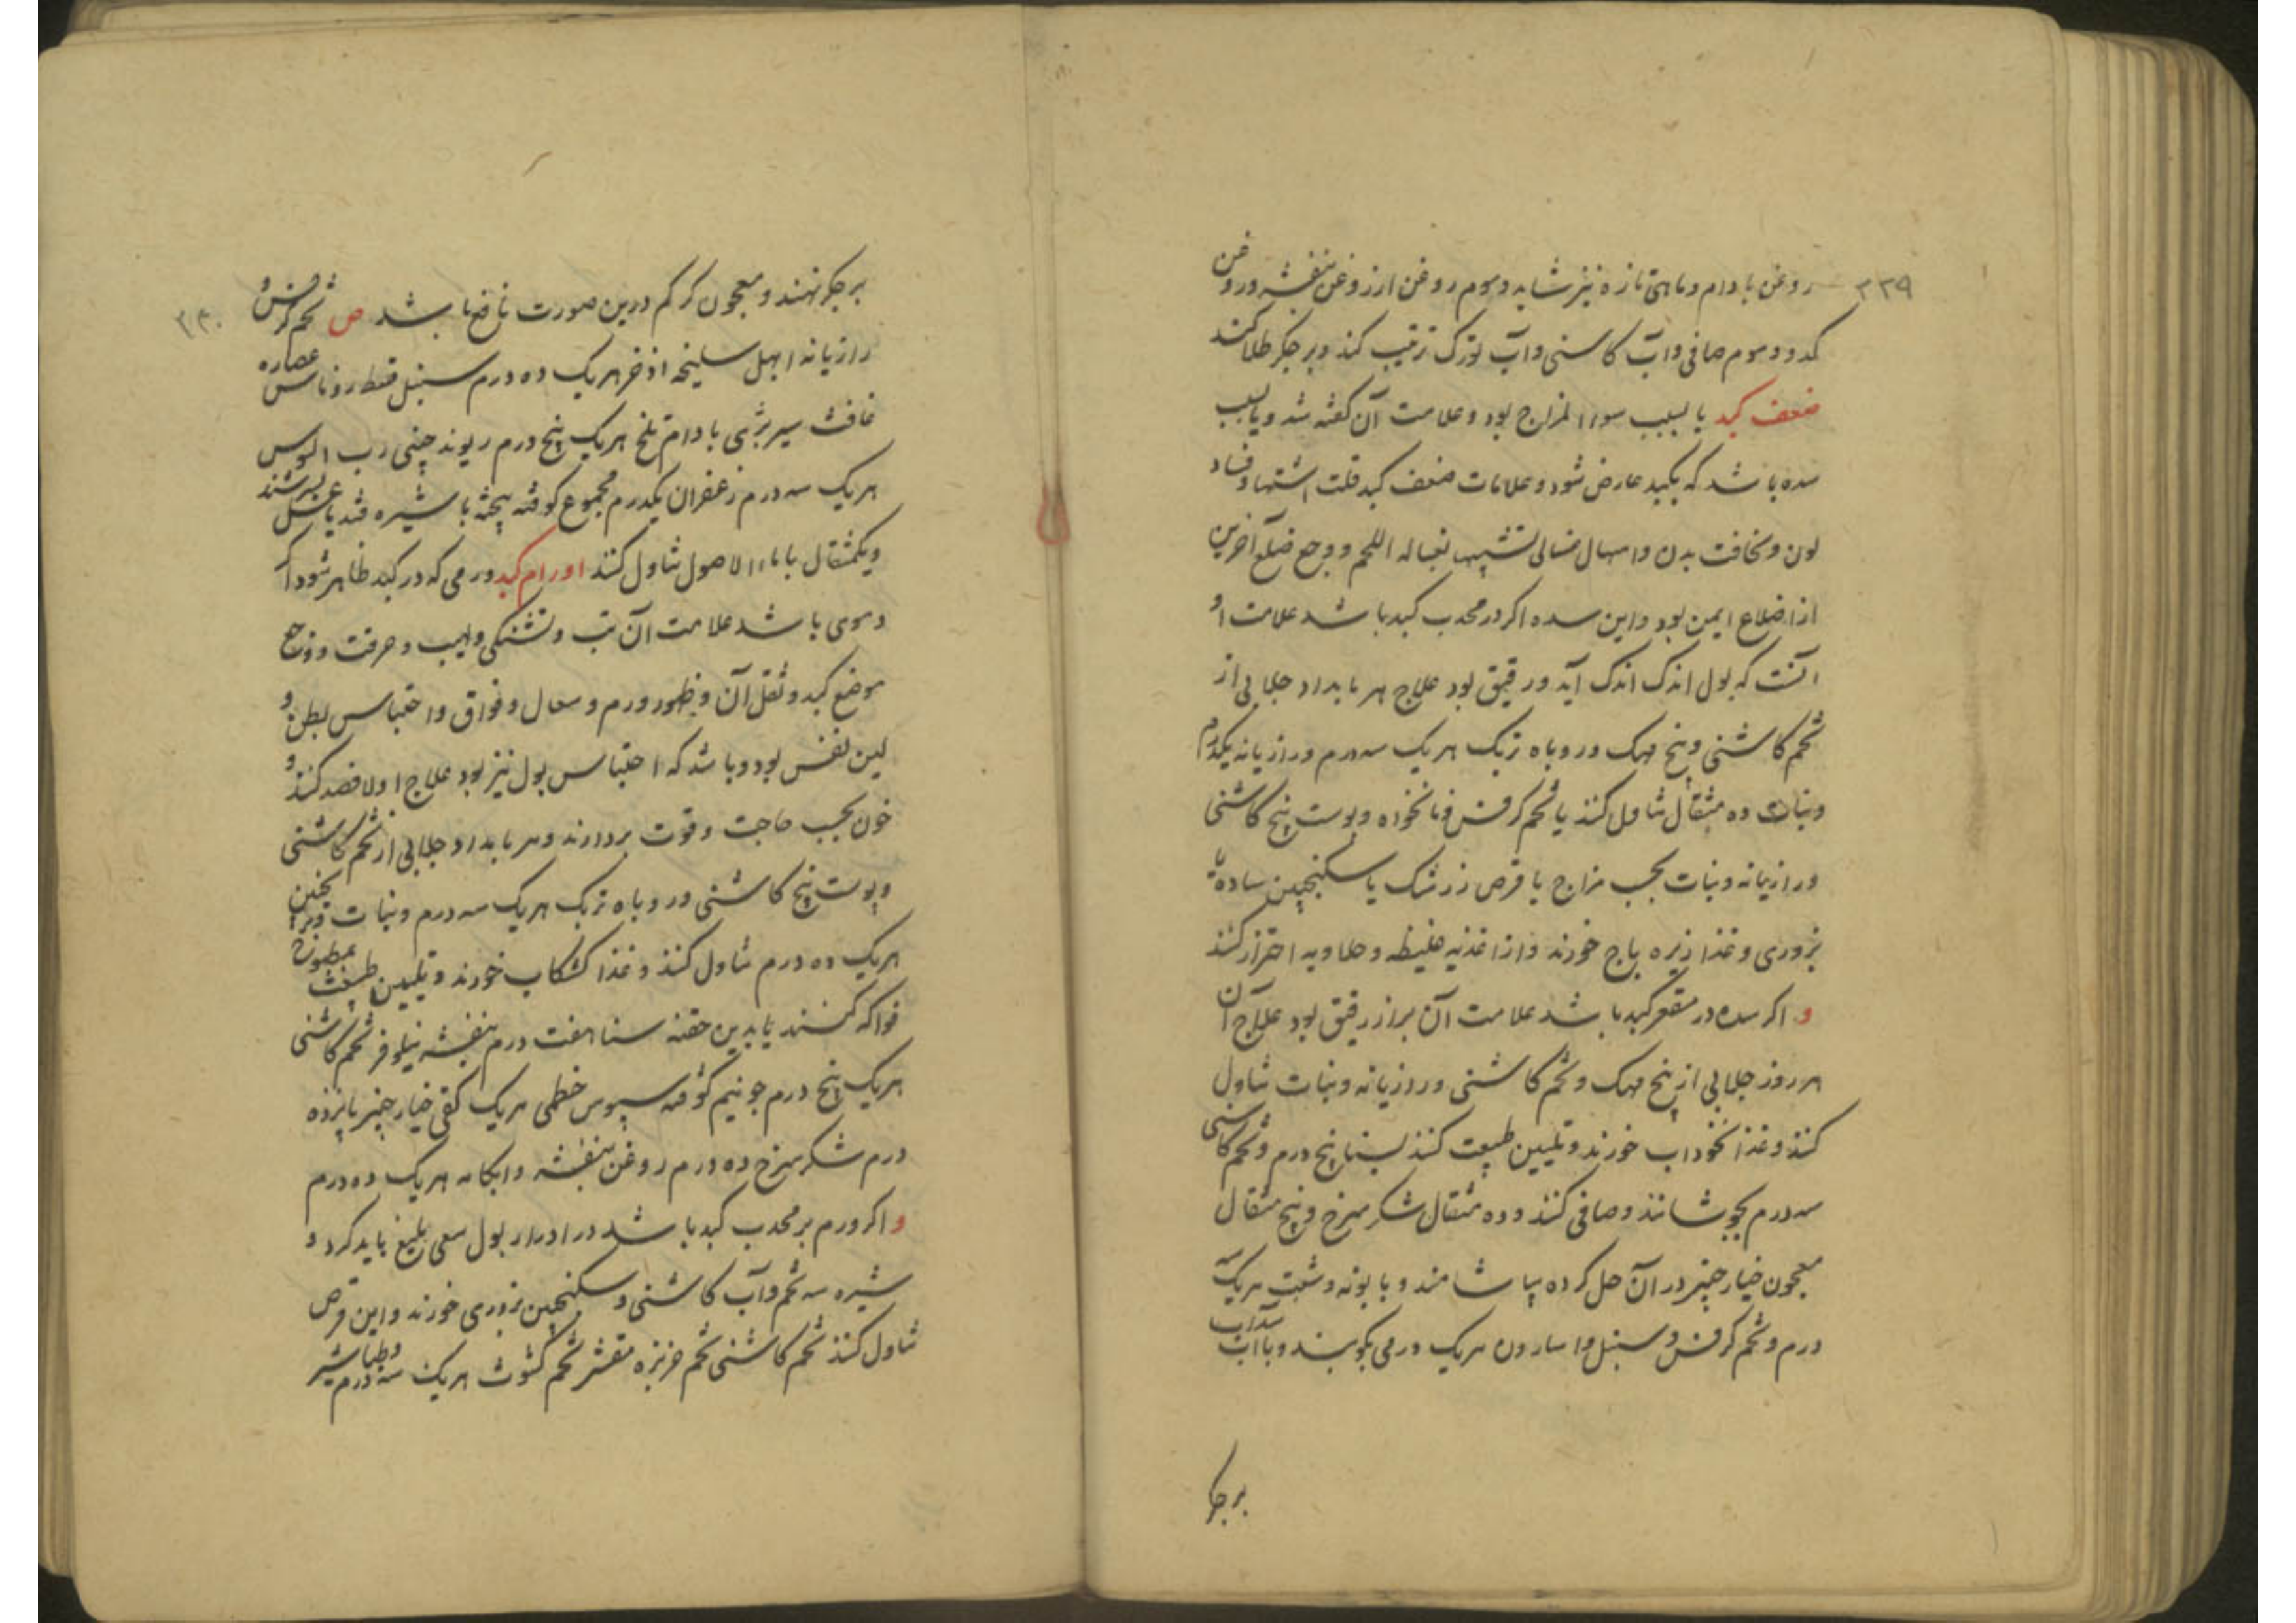 ۳۳۹
روغن بادام و ماهی تازه نیز شاید و موم روغن از روغن بنفشه و روغن
کدو و موم صافی و آب کاسنی و آب تورک ترتیب کند و بر جکر طلا کنند
ضعف کبد یا بسبب سوء المزاج بود و علامت آن کفته شد و یا بسبب
سده باشد که بکبد عارض شود و علامات ضعف کبد قلت اشتها و فساد
لون و نحافت بدن و اسهال غسالی تشبیها بغسالة اللحم و وجع ضلع آخرین
از اضلاع ایمن بود و این سده اکر در محدب کبد باشد علامت او
آنست که بول اندک اندک آید و رقیق بود علاج هر بامداد جلابی از
تخم کاشنی و بیخ مهک و روباه تربک هر یک سه درم و رازیانه یکدرم
و نبات ده مثقال تناول کنند یا تخم کرفس و نانخواه و پوست بیخ کاشنی
و رازیانه و نبات بحسب مزاج یا قرص زرشک یا سکنجبین ساده یا
بزوری و غذا زیره باج خورند و از اغذیه غلیظه و حلاویه احتراز کنند
و اکر سده در مقعر کبد باشد علامت آن براز رقیق بود علاج آن
هر روز جلابی از بیخ مهک و تخم کاشنی و رازیانه و نبات تناول
کنند و غذا نخوداب خورند و تلیین طبیعت کنند بسنا پنج درم و تخم کاشنی
سه درم بجوشانند و صافی کنند و ده مثقال شکر سرخ و پنج مثقال
معجون خیار چنبر در آن حل کرده بیاشامند و بابونه و شبت هر یک سه
درم و تخم کرفس و سنبل و اسارون هر یک درمی بکوبند و با آب سداب
بر جکر
۳۴۰
بر جکر نهند و معجون کرکم درین صورت نافع باشد ص تخم کرفس و
رازیانه ابهل سلیخه اذخر هر یک ده درم سنبل قسط روناس عصاره
غافث سیر بری بادام تلخ هر یک پنج درم ریوند چینی رب السوس
هر یک سه درم زعفران یکدرم مجموع کوفته بیخته با شیره قند یا عسل بسرشند
و یکمثقال با ماء الاصول تناول کنند اورام کبد ورمی که در کبد ظاهر شود اکر
دموی باشد علامت آن تب و تشنکی و لهیب و حرقت و وجع
موضع کبد و ثقل آن و ظهور ورم و سعال و فواق و احتباس بطن و
لین نفس بود و باشد که احتباس بول نیز بود علاج اولا فصد کنند و
خون بحسب حاجت و قوت بردارند و هر بامداد جلابی از تخم کاشنی
و پوست بیخ کاشنی و روباه تربک هر یک سه درم و نبات و ترنجبین
هر یک ده درم تناول کنند و غذا کشکاب خورند و تلیین طبیعت بمطبوخ
فواکه کنند یا بدین حقنه سنا هفت درم بنفشه نیلوفر تخم کاشنی
هر یک پنج درم جو نیم کوفته سبوس خطمی هر یک کفی خیار چنبر پانزده
درم شکر سرخ ده درم روغن بنفشه و ابکامه هر یک ده درم
و اکر ورم بر محدب کبد باشد در ادرار بول سعی بلیغ باید کرد و
شیره سه تخم و آب کاشنی و سکنجبین بزوری خورند و این قرص
تناول کنند تخم کاشنی تخم خربزه مقشر تخم کشوث هر یک سه درم و طباشیر